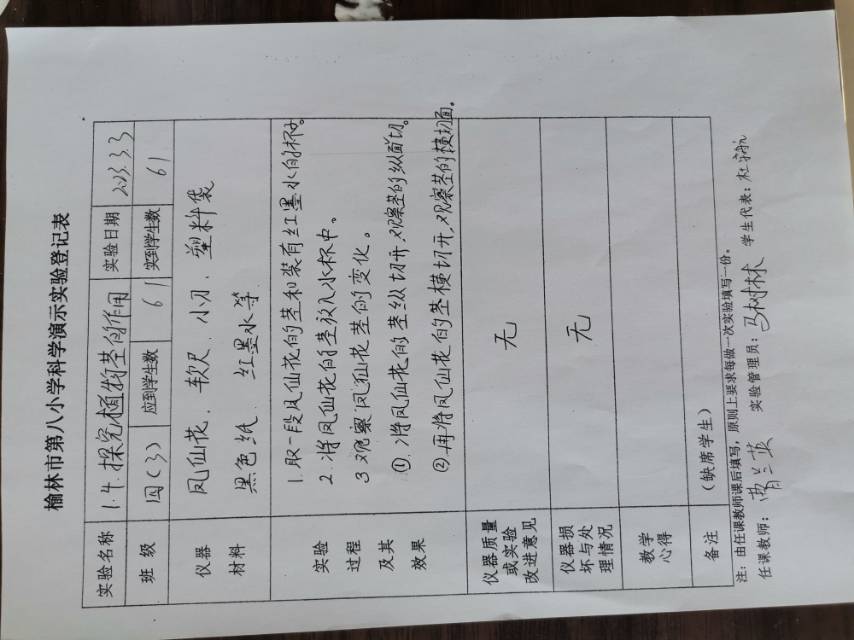 榆林市第八小学科学演示实验登记表
实验名称 1.4.探究植物茎的作用 实验日期 2023.3.3
班级 四(3) 应到学生数 61 实到学生数 61
仪器 凤仙花、软尺、小刀、塑料袋
材料 黑色纸、红墨水等
实验过程及其效果
1.取一段凤仙花的茎和装有红墨水的杯子。
2.将凤仙花的茎放入水杯中。
3.观察凤仙花茎的变化。
①.将凤仙花的茎纵切开,观察茎的纵面切。
②再将凤仙花的茎横切开,观察茎的横切面。
仪器质量或实验改进意见 无
仪器损坏与处理情况 无
教学心得
备注 (缺席学生)
注:由任课教师课后填写,原则上要求每做一次实验填写一份。
任课教师:曹兰英 实验管理员:马树林 学生代表: